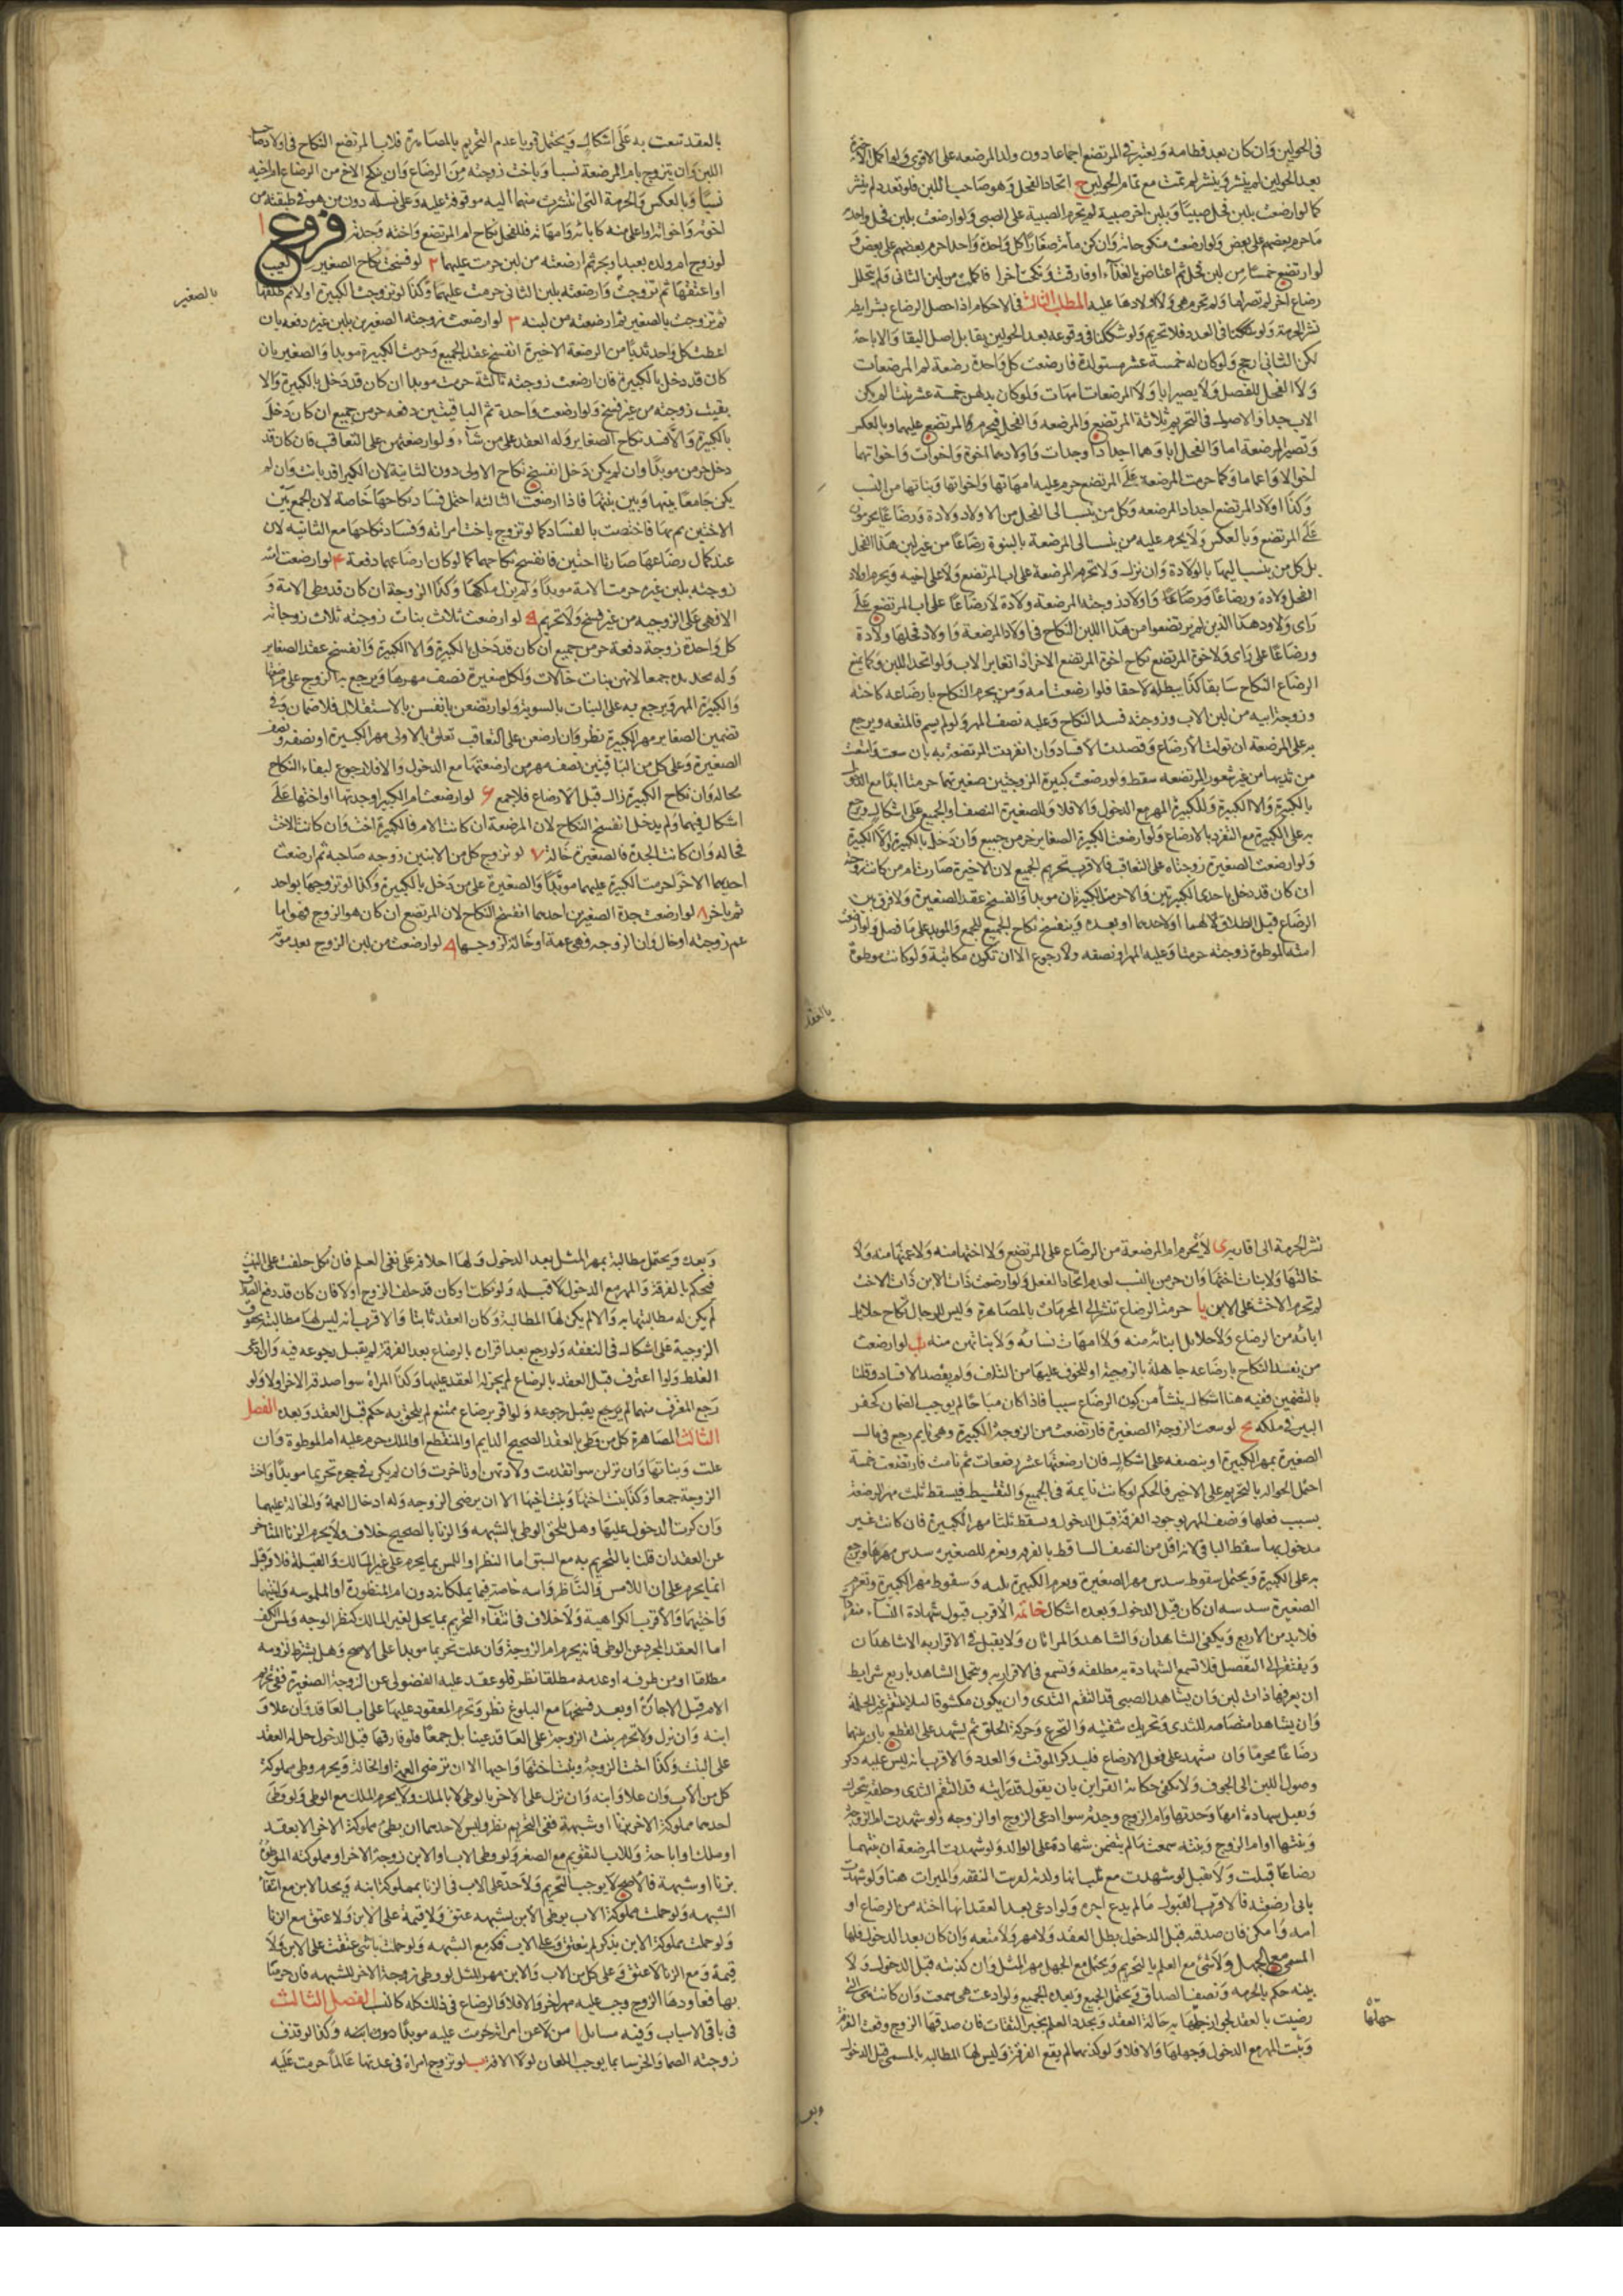 فى الحولين وان كان بعد فطامه ويعتبر فى المرتضع اجماعا دون ولد المرضعه على الاقوى ولو اكمل الاخيرة
بعد الحولين لم ينشر وينشر لو تمت مع تمام الحولين ح اتحاد الفحل وهو صاحب اللبن فلو تعدد لم ينشر
كما لو ارضعت بلبن فحل صبيا وبلبن اخر صبية لم تحرم الصبية على الصبى ولو ارضعت بلبن فحل واحد
ماة حرم بعضهم على بعض ولو ارضعت منكوحاته وان كن مأته صغارا كل واحدة واحدا حرم بعضهم على بعض و
لو ارتضع خمسا من لبن فحل ثم اعتاض بالغذاء او فارقت ونكحت اخر فاكملت من لبن الثانى ولم يتخلل
رضاع اخر لم تصر اما ولم تحرم هى ولا اولادها عليه المطلب الثالث فى الاحكام اذا حصل الرضاع بشرايطه
نشر الحرمة ولو شككنا فى العدد فلا تحريم ولو شككنا فى وقوعه بعد الحولين تقابل اصل البقا والاباحة
لكن الثانى ارجح ولو كان له خمسة عشر مستولدة فارضعت كل واحدة رضعة لم تحرم المرضعات
ولا الفحل للفصل ولا يصير ابا ولا المرضعات امهات ولو كان بدلهن خمسة عشر بنتا لم يكن
الاب جدا والاصول فى التحريم ثلاثة المرتضع والمرضعه والفحل فيحرم المرتضع عليهما وبالعكس
وتصير المرضعة اما والفحل ابا وآباؤهما اجدادا وجدات واولادهما اخوة واخوات واخواتهما
اخوالا واعماما وكما حرمت المرضعة على المرتضع حرم عليه امهاتها واخواتها وبناتها من النسب
وكذا اولاد المرتضع احفاد المرضعه وكل من ينتسب الى الفحل من الاولاد ولادة ورضاعا يحرمون
على المرتضع وبالعكس ولا يحرم عليه من ينتسب الى المرضعة بالبنوة رضاعا من غير لبن هذا الفحل
بل كل من ينسب اليها بالولادة وان نزل ولا تحرم المرضعة على اب المرتضع ولا على اخيه ويحرم اولاد
الفحل ولادة ورضاعا واولاد زوجته المرضعة ولادة لا رضاعا على اب المرتضع على
راى ولاولاد هذا الذين لم يرتضعوا من هذا اللبن النكاح فى اولاد المرضعة واولاد فحلها ولادة
ورضاعا على راى ولاخوة المرتضع نكاح اخوة المرتضع الاخر اذا تغاير الاب ولو اتحد اللبن وكما يمنع
الرضاع النكاح سابقا كذا يبطله لاحقا فلو ارضعت امه ومن يحرم النكاح بارضاعه كاخته
وزوجة ابيه من لبن الاب وزوجته فسد النكاح وعليه نصف المهر ولو لم يسم فالمتعه ويرجع
به على المرضعة ان تولت الارضاع وقصدت الافساد وان انفردت المرتضعة به بان سعت وامتصت
من ثديها من غير شعور المرتضعه سقط ولو ارضعت كبيرة الزوجتين صغيرتهما حرمتا ابدا مع الدخول
بالكبيرة والا الكبيرة وللكبيرة المهر مع الدخول والا فلا وللصغيرة النصف او الجميع على اشكال ويرجع
به على الكبيرة مع التفرد بالارضاع ولو ارضعت الكبيرة الصغاير حرمن جميع وان دخل بالكبيرة والا الكبيرة
ولو ارضعت الصغيرة زوجتاه على التعاقب فالاقرب تحريم الجميع لان الاخيرة صارت ام من كانت زوجته
ان كان قد دخل باحدى الكبيرتين والا حرمت الكبيرتان موبدا وانفسخ عقد الصغيرة ولا فرق بين
الرضاع قبل الطلاق لهما او لاحدهما او بعده وينفسخ نكاح الجميع للجمع والموبد على ما فصل ولو ارضعت
امته الموطوة زوجته حرمتا وعليه المهر او نصفه ولا رجوع الا ان تكون مكاتبة ولو كانت موطوة
بالعقد
بالعقد تبعت به على اشكال ويحتمل قويا عدم التحريم بالمصاهرة فلاب المرتضع النكاح فى اولاد صاحب
اللبن وان يتزوج بام المرضعة نسبا وباخت زوجته من الرضاع وان ينكح الاخ من الرضاع ام اخيه
نسبا وبالعكس والحرمة التى انتشرت منهما اليه موقوفة عليه وعلى نسله دون من هو فى طبقته من
اخوته واخواته او اعلى منه كابائه وامهاته فللفحل نكاح ام المرتضع واخته وجدته فروع ا
لو زوج ام ولده بعبد او بحر ثم ارضعته من لبنه حرمت عليهما ٢ لو فسخت نكاح الصغير لعيب
او اعتقها ثم تزوجت وارضعته بلبن الثانى حرمت عليهما وكذا لو تزوجت الكبيرة اولا ثم طلقها
بالصغير
ثم تزوجت بالصغير ثم ارضعته من لبنه ٣ لو ارضعت زوجته الصغيرين بلبن غيره دفعه بان
اعطت كل واحد ثديا من الرضعة الاخيرة انفسخ عقد الجميع وحرمت الكبيرة موبدا والصغيرتان
كان قد دخل بالكبيرة فان ارضعت زوجته ثالثة حرمت موبدا ان كان قد دخل بالكبيرة والا
بقيت زوجته من غير فسخ ولو ارضعت واحدة ثم الباقيتين دفعه حرمن جميع ان كان دخل
بالكبيرة والا فسد نكاح الصغاير وله العقد على من شاء ولو ارضعتهن على التعاقب فان كان قد
دخل حرمن موبدا وان لم يكن دخل انفسخ نكاح الاولى دون الثانية لان الكبيرة قد بانت وان لم
يكن جامعا بينها وبين بنتها فاذا ارضعت الثالثه احتمل فساد نكاحها خاصة لان الجمع بين
الاختين تم بها فاختصت بالفساد كما لو تزوج باخت امراته وفساد نكاحها مع الثانيه لان
عند كمال رضاعها صارتا اختين فانفسخ نكاحهما كما لو كان ارضاعهما دفعة ۴ لو ارضعت امته
زوجته بلبن غيره حرمت الامة موبدا ولم يزل ملكها وكذا الزوجة ان كان قد وطى الامة و
الا فهى على الزوجيه من غير فسخ ولا تحريم ۵ لو ارضعت ثلاث بنات زوجته ثلاث زوجاته
كل واحدة زوجة دفعة حرمن جميع ان كان قد دخل بالكبيرة والا الكبيرة وانفسخ عقد الصغاير
وله تجديده جمعا لانهن بنات خالات ولكل صغيرة نصف مهرها ويرجع به الزوج على مرضعتها
وللكبيرة المهر ويرجع به على البنات بالسوية ولو ارتضعن بانفسهن بالاستقلال فلا ضمان وفى
تضمين الصغاير مهر الكبيرة نظر وان ارضعن على التعاقب تعلق بالاولى مهر الكبيرة او نصفه ونصف
الصغيرة وعلى كل من الباقيتين نصف مهر من ارضعتها مع الدخول والا فلا رجوع لبقاء النكاح
بحاله وان نكاح الكبيرة زال قبل الارضاع فلا جمع ۶ لو ارضعت ام الكبيرة او جدتها او اختها على
اشكال فيهما ولم يدخل انفسخ النكاح لان المرضعة ان كانت الام فالكبيرة اخت وان كانت الاخت
فخاله وان كانت الجدة فالصغيرة خالة ٧ لو تزوج كل من الاثنين زوجه صاحبه ثم ارضعت
احديهما الاخرى حرمت الكبيرة عليهما موبدا والصغيرة على من دخل بالكبيرة وكذا لو تزوجها بواحد
ثم باخر ٨ لو ارضعت جدة الصغيرين احدهما انفسخ النكاح لان المرتضع ان كان هو الزوج فهو اما
عم زوجته او خال وان الزوجه فهى عمة او خالة لزوجها ٩ لو ارضعت من لبن الزوج بعد موته
نشر الحرمة الى اقاربه ى لا تحرم ام المرضعة من الرضاع على المرتضع ولا اختها منه ولا عمتها منه ولا
خالتها ولا بنات اختها وان حرمن بالنسب لعدم اتحاد الفحل ولو ارضعت ذات الابن ذات الاخت
لم تحرم الاخت على الابن يا حرمة الرضاع تنشر الى المحرمات بالمصاهرة وليس للرجل نكاح حلايل
ابائه من الرضاع ولا حلايل ابنائه منه ولا امهات نسائه ولا بناتهن منه يب لو ارضعت
من يفسد النكاح بارضاعه جاهلة بالزوجية او للخوف عليها من التلف ولم يقصد الافساد وقلنا
بالتضمين ففيه هنا اشكال ينشأ من كون الرضاع سببا فاذا كان مباحا لم يوجب الضمان كحفر
البير فى ملكه يج لو سعت الزوجة الصغيرة فارتضعت من الزوجة الكبيرة وهى نايم رجع فى مال
الصغيرة بمهر الكبيرة او بنصفه على اشكال فان ارضعتها عشر رضعات ثم نامت فارتضعت خمسة
احتمل الحوالة بالتحريم على الاخير فالحكم لو كانت نايمة فى الجميع والتقسيط فيسقط ثلث مهر الرضعة
بسبب فعلها ونصف المهر لوجود الفرقة قبل الدخول ويسقط ثلثا مهر الكبيرة فان كانت غير
مدخول بها سقط الباقى لانه اقل من النصف الساقط بالفرقة ويغرم للصغيرة سدس مهرها ويرجع
به على الكبيرة ويحتمل سقوط سدس مهر الصغيرة ويغرم الكبيرة ثلثه وسقوط مهر الكبيرة وتغرم
الصغيرة سدسه ان كان قبل الدخول وبعده اشكال خاتمه الاقرب قبول شهادة النساء منفردا
فلا بد من الاربع ويكفى الشاهدان والشاهد والمراتان ولا يقبل فى الاقرار به الا شاهدان
ويفتقر الى التفصيل فلا تسمع الشهادة به مطلقه وتسمع فى الاقرار به ويتحمل الشاهد باربع شرايط
ان يعرفها ذات لبن وان يشاهد الصبى قد التقم الثدى وان يكون مكشوفا لئلا يلتقم غير الحلمة
وان يشاهد امتصاصه للثدى وتحريك شفتيه والتجرع وحركة الحلق ثم يشهد على القطع بان بينهما
رضاعا محرما وان شهد على فعل الارضاع فليذكر الوقت والعدد والاقرب انه ليس عليه ذكر
وصول اللبن الى الجوف ولا يكفى حكاية القراين بان يقول قد رايته قد التقم الثدى وحلقه يتحرك
وتقبل شهادة امها وجدتها وام الزوج وجدته سوا ادعى الزوج او الزوجه ولو شهدت ام الزوجة
وبنتها او ام الزوج وبنته سمعت ما لم يتضمن شهادة على الوالد ولو شهدت المرضعة ان بينهما
رضاعا قبلت ولا تقبل لو شهدت مع ثلث انها ولدته لترتب النفقه والميراث هنا ولو شهدت
بانى ارضعته فالاقرب القبول ما لم يدع اجرة ولو ادعى بعد العقد انها اخته من الرضاع او
امه وامكن فان صدقته قبل الدخول بطل العقد ولا مهر ولا متعه وان كان بعد الدخول فلها
المسمى مع الجهل ولا شئ مع العلم بالتحريم ويحتمل مع الجهل مهر المثل وان كذبته قبل الدخول ولا
بينه حكم بالحرمه ونصف الصداق ويحتمل الجميع وبعده الجميع ولو ادعت هى سمعت وان كانت هى التى
رضيت بالعقد لجواز جهلها به حالة العقد وتجدد العلم بخبر الثقات فان صدقها الزوج وقعت الفرقة
جهلها
وثبت المهر مع الدخول وجهلها والا فلا ولو كذبها لم تقع الفرقة وليس لها المطالبه بالمسمى قبل الدخول
وبعد
وبعده ويحتمل مطالبة بمهر المثل بعد الدخول ولها احلافه على نفى العلم فان نكل حلفت على البت
فيحكم بالفرقة والمهر مع الدخول لا قبله ولو نكلت او كان قد حلف الزوج اولا فان كان قد دفع الصداق
لم يكن له مطالبتها به والا لم يكن لها المطالبة وكان العقد ثابتا والاقرب انه ليس لها مطالبته بحقوق
الزوجية على اشكال فى النفقه ولو رجع بعد اقراره بالرضاع بعد الفرقة لم يقبل رجوعه فيه وان ادعى
الغلط ولو اعترف قبل العقد بالرضاع لم يجز له العقد عليها وكذا المراة سوا صدقه الاخر او لا ولو
رجع المعترف منهما لم يقبل رجوعه ولو اقر برضاع ممتنع لم يلحق به حكم قبل العقد وبعده الفصل
الثالث المصاهرة كل من وطى بالعقد الصحيح الدايم او المنقطع او الملك حرم عليه ام الموطوة وان
علت وبناتها وان نزلن سوا تقدمت ولادتهن او تاخرت وان لم يكن فى حجره تحريما موبدا واخت
الزوجة جمعا وكذا بنت اختها وبنت اخيها الا ان يرضى الزوجه وله ادخال العمة والخالة عليهما
وان كرهتا الدخول عليها وهل يلحق الوطى بالشبهه والزنا بالصحيح خلاف ولا يحرم الزنا المتاخر
عن العقد ان قلنا بالتحريم به مع السبق اما النظر او اللمس بما يحرم على غير المالك والقبلة فلا وقيل
انما يحرم على ابن اللامس والناظر وابيه خاصة فيما يملكانه دون ام المنظورة او الملموسه وابنتهما
واختهما والاقرب الكراهية ولا خلاف فى انتفاء التحريم بما يحل لغير المالك كنظر الوجه ولمس الكف
اما العقد المجرد عن الوطى فانه يحرم ام الزوجة وان علت تحريما موبدا على الاصح وهل يشترط لزومه
مطلقا او من طرفه او عدمه مطلقا نظر فلو عقد عليه الفضولى عن الزوجة الصغيرة ففى تحريم
الام قبل الاجازة او بعد فسخها مع البلوغ نظر وتحرم المعقود عليها على اب العاقد وان علا و
ابنه وان نزل ولا تحرم بنت الزوجة على العاقد عينا بل جمعا فلو فارقها قبل الدخول حل له العقد
على البنت وكذا اخت الزوجة وبنت اختها واخيها الا ان ترضى العمة او الخالة ويحرم وطى مملوكة
كل من الاب وان علا وابنه وان نزل على الاخر بالوطى لا بالملك ولا يحرم الملك مع الوطى ولو وطى
احدهما مملوكة الاخر بزنا او شبهة ففى التحريم نظر وليس لاحدهما ان يطئ مملوكة الاخر الا بعقد
او ملك او اباحة وللاب التقويم مع الصغر ولو وطى الاب والابن زوجة الاخر او مملوكته الموطوة
بزنا او شبهة فالاصح لا يوجب التحريم ولا حد على الاب فى الزنا بمملوكة ابنه ويحد الابن مع انتفاء
الشبهه ولو حملت مملوكة الاب بوطى الابن بشبهه عتق ولا قيمة على الابن ولا عتق مع الزنا
ولو حملت مملوكة الابن بذكر لم ينعتق وعلى الاب فكه مع الشبهه ولو حملت بانثى عتقت على الابن ولا
قيمة ومع الزنا لا عتق وعلى كل من الاب والابن مهر المثل لو وطى زوجة الاخر للشبهه فان حرمنا
بها فعاودها الزوج وجب عليه مهر اخر والا فلا والرضاع فى ذلك كله كالنسب الفصل الثالث
فى باقى الاسباب وفيه مسايل ا من لاعن امراته حرمت عليه موبدا دون ابنه وكذا لو قذف
زوجته الصما والخرسا بما يوجب اللعان لولا الافة ب لو تزوج امراة فى عدتها عالما حرمت عليه